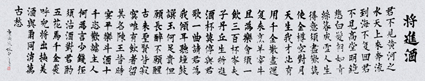 將進酒
君不見黃河之
水天上來奔流
到海不復回君
不見高堂明鏡
悲白髮朝如青
絲暮成雪人生
得意須盡歡莫
使金樽空對月
天生我才必有
用千金散盡還
復來烹羊宰牛
且為樂會須一
飲三百杯岑夫
子丹丘生將進
酒杯莫停與君
歌一曲請君為
我傾耳聽鐘鼓
饌玉何足貴但
願長醉不願醒
古來聖賢皆寂
寞惟有飲者留
其名陳王昔時
宴平樂斗酒十
千恣歡謔主人
何為言少錢徑
須沽取對君酌
五花馬千金裘
呼兒將出換美
酒與爾同銷萬
古愁